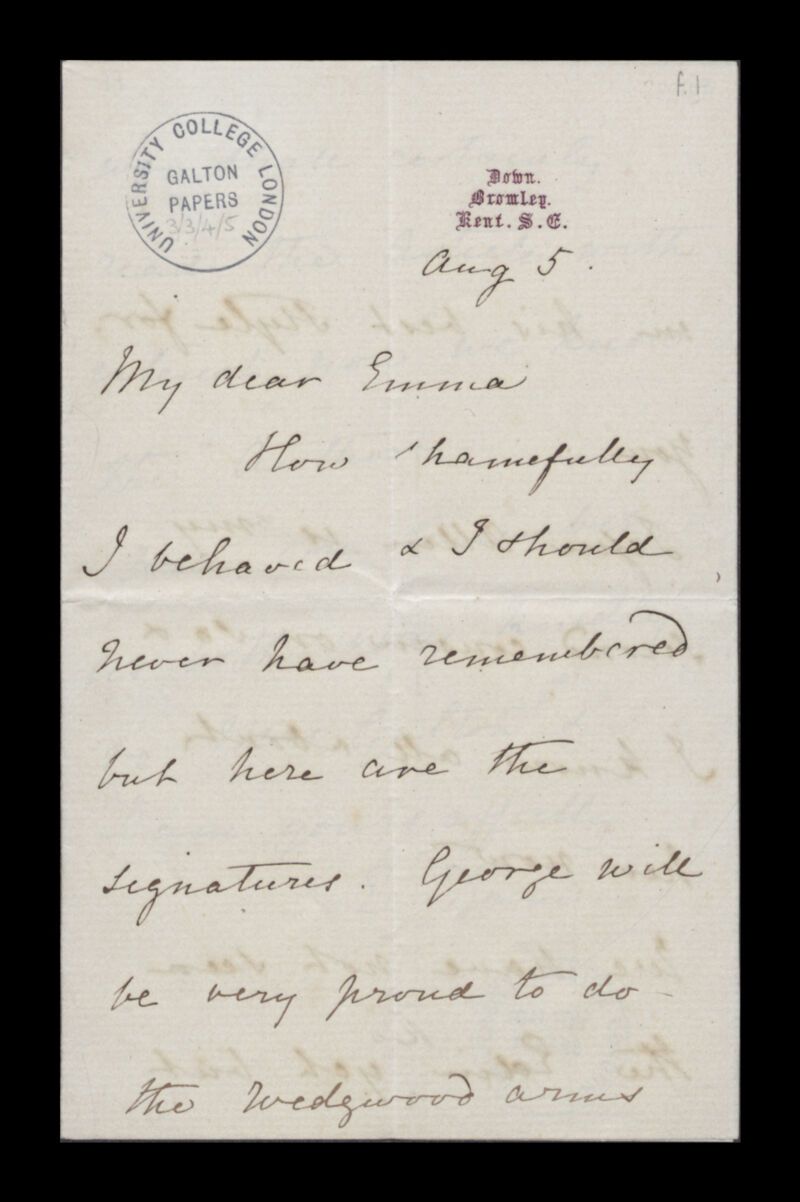 f.1
UNIVERSITY COLLEGE LONDON
GALTON
PAPERS
3/3/4/5
Down.
Bromley.
Kent. S.E.
Aug 5.
My dear Emma
How shamefully
I behaved & I should
never have remembered
but here are the
signatures. George will
be very proud to do
the Wedgwood arms